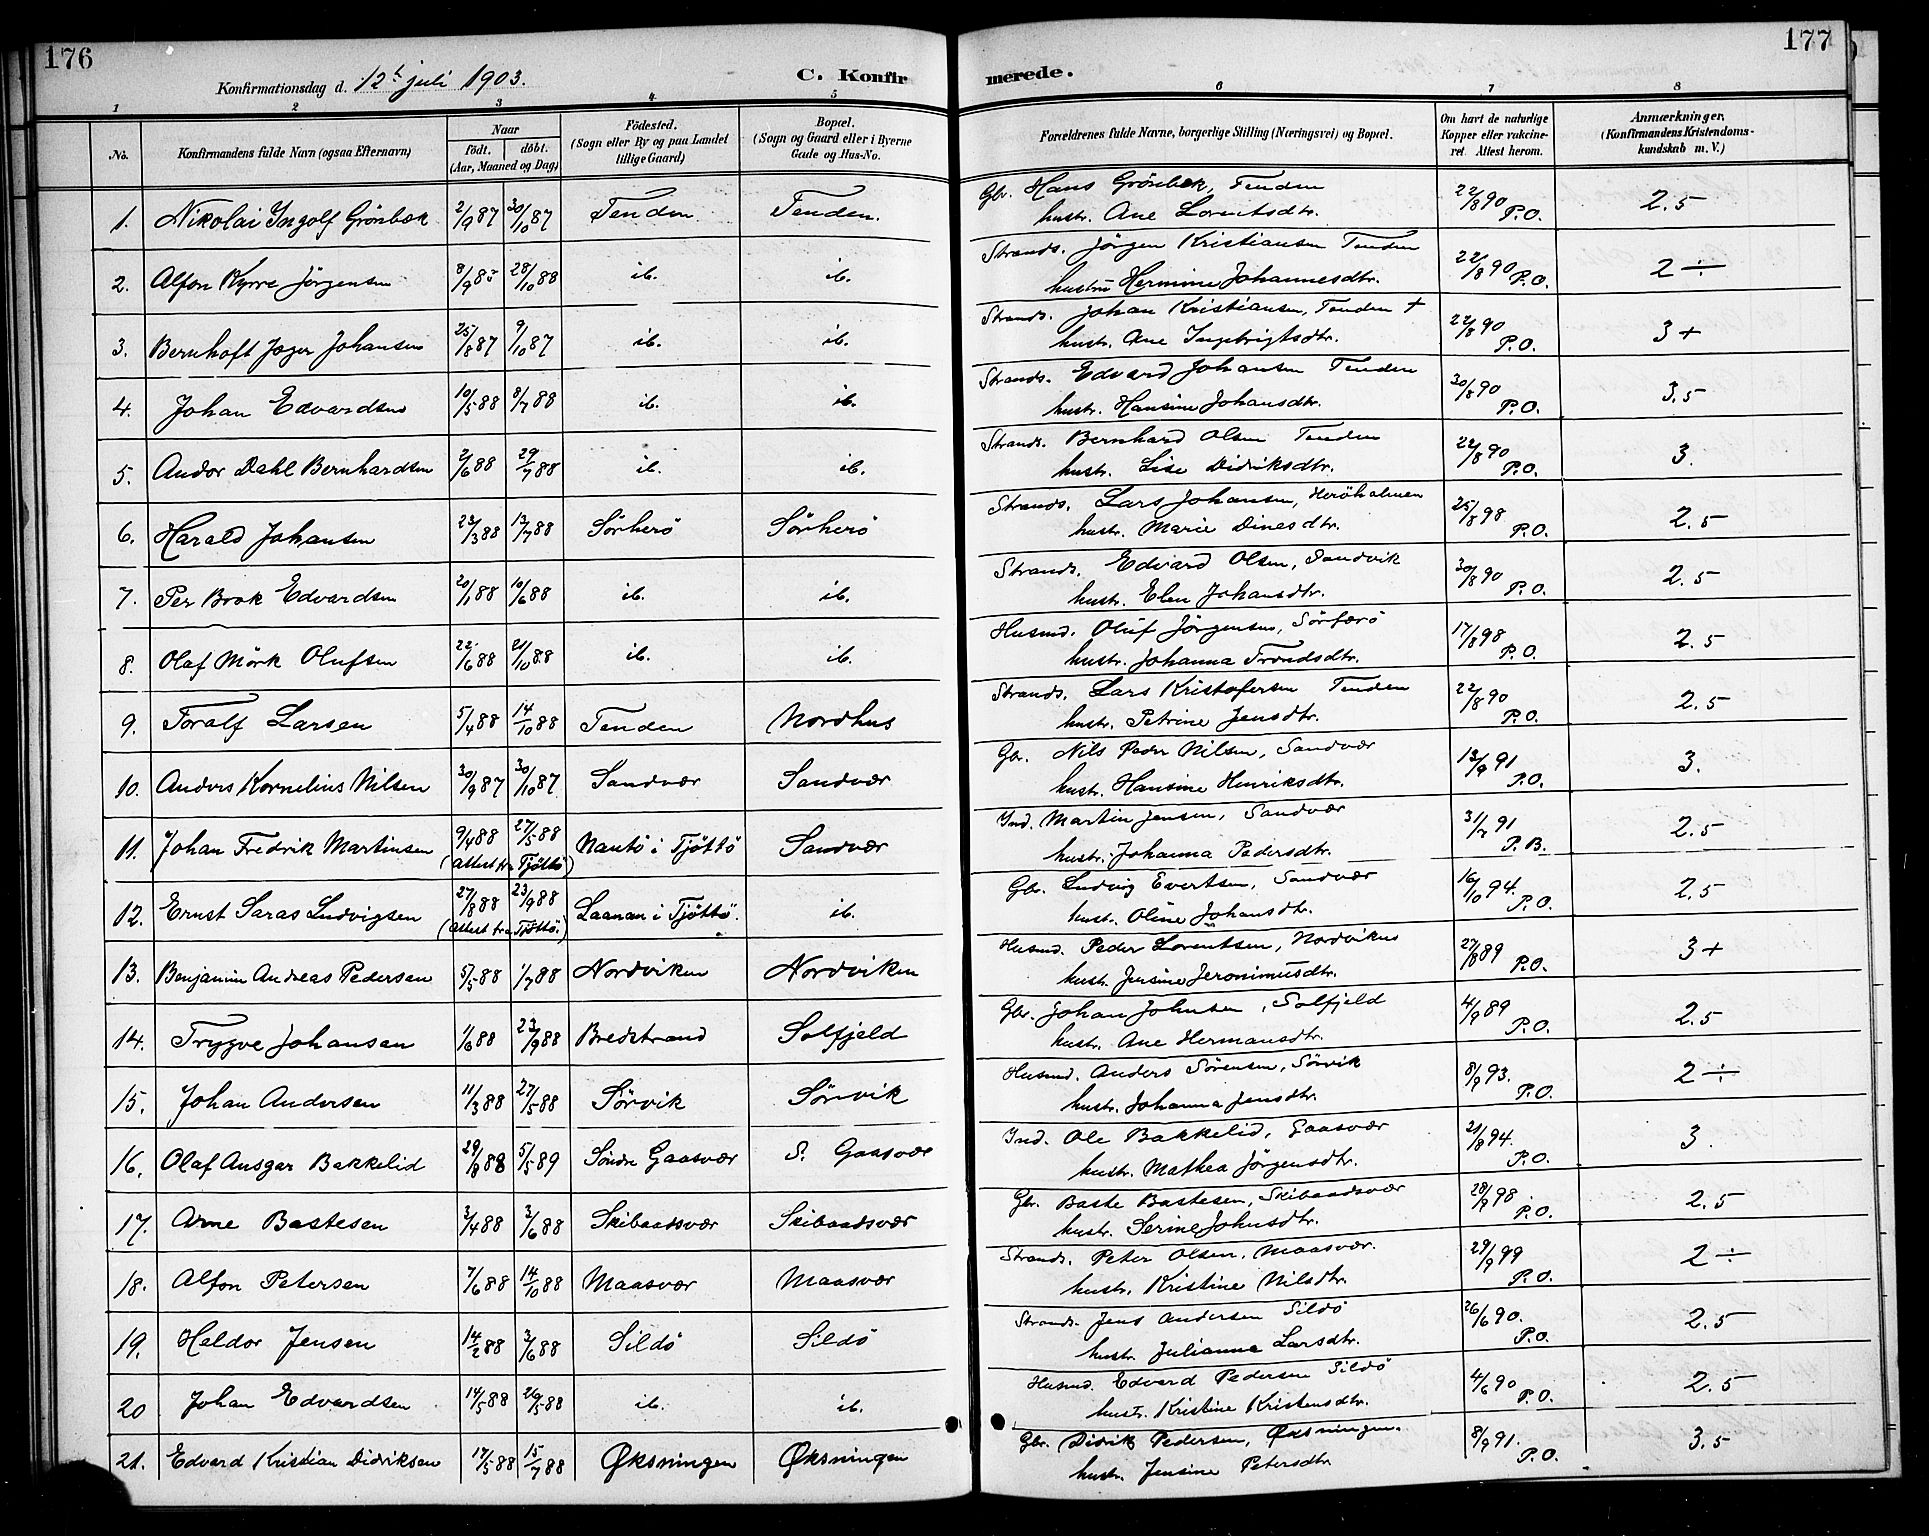 176
177
Konfirmationsdag d. 12te juli 1903.
C. Konfirmerede.
1 2 3 4. 5 6 7 8
No.
Konfirmandens fulde Navn (ogsaa Efternavn)
Naar
födt. döbt.
(Aar, Maaned og Dag)
Födested.
(Sogn eller By og paa Landet
tillige Gaard)
Bopæl.
(Sogn og Gaard eller i Byerne
Gade og Hus-No.
Forældrenes fulde Navne, borgerlige Stilling (Næringsvei) og Bopæl.
Om havt de naturlige
Kopper eller vakcineret. Attest herom.
Anmærkninger.
(Konfirmandens Kristendomskundskab m. V.)
1. Nikolai Ingolf Grönbæk 2/9 87 30/10 87 Tenden Tenden. Gbr. Hans Grönbæk, Tenden
hustr. Ane Lorentsdtr. 22/8 90 P.O. 2.5
2. Alfon Kyrre Jörgensen 8/9 85 28/10 88 ib. ib. Strands. Jörgen Kristiansen Tenden
hustru Hermine Johannesdtr. 22/8 90 P.O. 2 ÷
3. Bernhoft Joger Johansen 25/8 87 9/10 87 ib. ib. Strands. Johan Kristiansen, Tenden +
hustr. Ane Ingebrigtsdtr. 22/8 90 P.O. 3 +
4. Johan Edvardsen 10/5 88 8/7 88 ib. ib. Strands. Edvard Johansen Tenden
hustr. Hansine Johansdtr. 30/8 90 P.O. 3.5
5. Andor Dahl Bernhardsen 2/6 88 29/7 88 ib. ib. Strands. Bernhard Olsen Tenden
hustr. Lise Didriksdtr. 22/8 90 P.O. 3.
6. Harald Johansen 23/3 88 13/7 88 Sörherö Sörherö Strands. Lars Johansen, Heröholmen
hustr. Marie Dinesdtr. 25/8 98 P.O. 2.5
7. Per Brok Edvardsen 20/1 88 10/6 88 ib. ib. Strands. Edvard Olsen, Sandvik
hustr. Elen Johansdtr. 30/8 90 P.O. 2.5
8. Olaf Mörk Olufsen 22/6 88 21/10 88 ib. ib. Husmd. Oluf Jörgensen, Sörferö
hustr. Johanna Trondsdtr. 17/8 98 P.O. 2.5
9. Toralf Larsen 5/4 88 14/10 88 Tenden Nordhus Strands. Lars Kristofersen Tenden
hustr. Petrine Jensdtr. 22/8 90 P.O. 2.5
10. Anders Kornelius Nilsen 30/9 87 30/10 87 Sandvær Sandvær Gbr. Nils Peder Nilsen, Sandvær
hustr. Hansine Henriksdtr. 13/9 91 P.O. 3.
11. Johan Fredrik Martinsen 9/4 88 27/5 88 Nautö i Tjöttö Sandvær Ind. Martin Jensen, Sandvær
(Attest fra Tjöttö) hustr. Johanna Pedersdtr. 31/7 91 P.B. 2.5
12. Ernst Saras Ludvigsen 27/8 88 23/9 88 Laanan i Tjöttö. ib. Gbr. Ludvig Evertsen, Sandvær
(Attest fra Tjöttö.) hustr. Oline Johansdtr. 16/10 94. P.O. 2.5
13. Benjamin Andreas Pedersen 5/5 88 1/7 88 Nordviken Nordviken Husmd. Peder Lorentsen, Nordviken
hustr. Jensine Jeronimusdtr. 27/8 89 P.O. 3 +
14. Trygve Johansen 1/6 88 23/9 88 Bredstrand Solfjeld Gbr. Johan Johnsen, Solfjeld
hustr. Ane Hermansdtr. 4/9 89 P.O. 2.5
15. Johan Andersen 11/3 88 27/5 88 Sörvik Sörvik Husmd. Anders Sörensen, Sörvik
hustr. Johanna Jensdtr. 8/9 93. P.O. 2 ÷
16. Olaf Ansgar Bakkelid 29/9 88 5/5 89 Söndre Gaasvær S. Gaasvær Ind. Ole Bakkelid, Gaasvær
hustr. Mathea Jörgensdtr. 21/8 94. P.O. 3.
17. Arne Bastesen 3/4 88 3/6 88 Skibaadsvær Skibaadsvær Gbr. Baste Bastesen, Skibaadsvær
hustr. Serine Johnsdtr. 28/9 98 P.O. 2.5
18. Alfon Petersen 7/6 88 14/10 88 Maasvær Maasvær Strands. Peter Olsen, Maasvær.
hustr. Kristine Nilsdtr. 29/9 99 P.O. 2 ÷
19. Haldor Jensen 14/2 88 3/6 88 Sildö Sildö Strands. Jens Andersen Sildö
hustr. Julianna Larsdtr. 26/6 90. P.O. 2.5
20 Johan Edvardsen 14/5 88 20/5 88 ib. ib. Husmd. Edvard Pedersen Sildö
hustr. Kristine Kristensdtr. 4/6 90 P.O. 2.5
21. Edvard Kristian Didriksen 17/5 88 15/7 88 Øksningen Øksningen Gbr. Didrik Pedersen, Øksningen.
hustr. Jensine Petersdtr. 8/9 91. P.O. 3.5